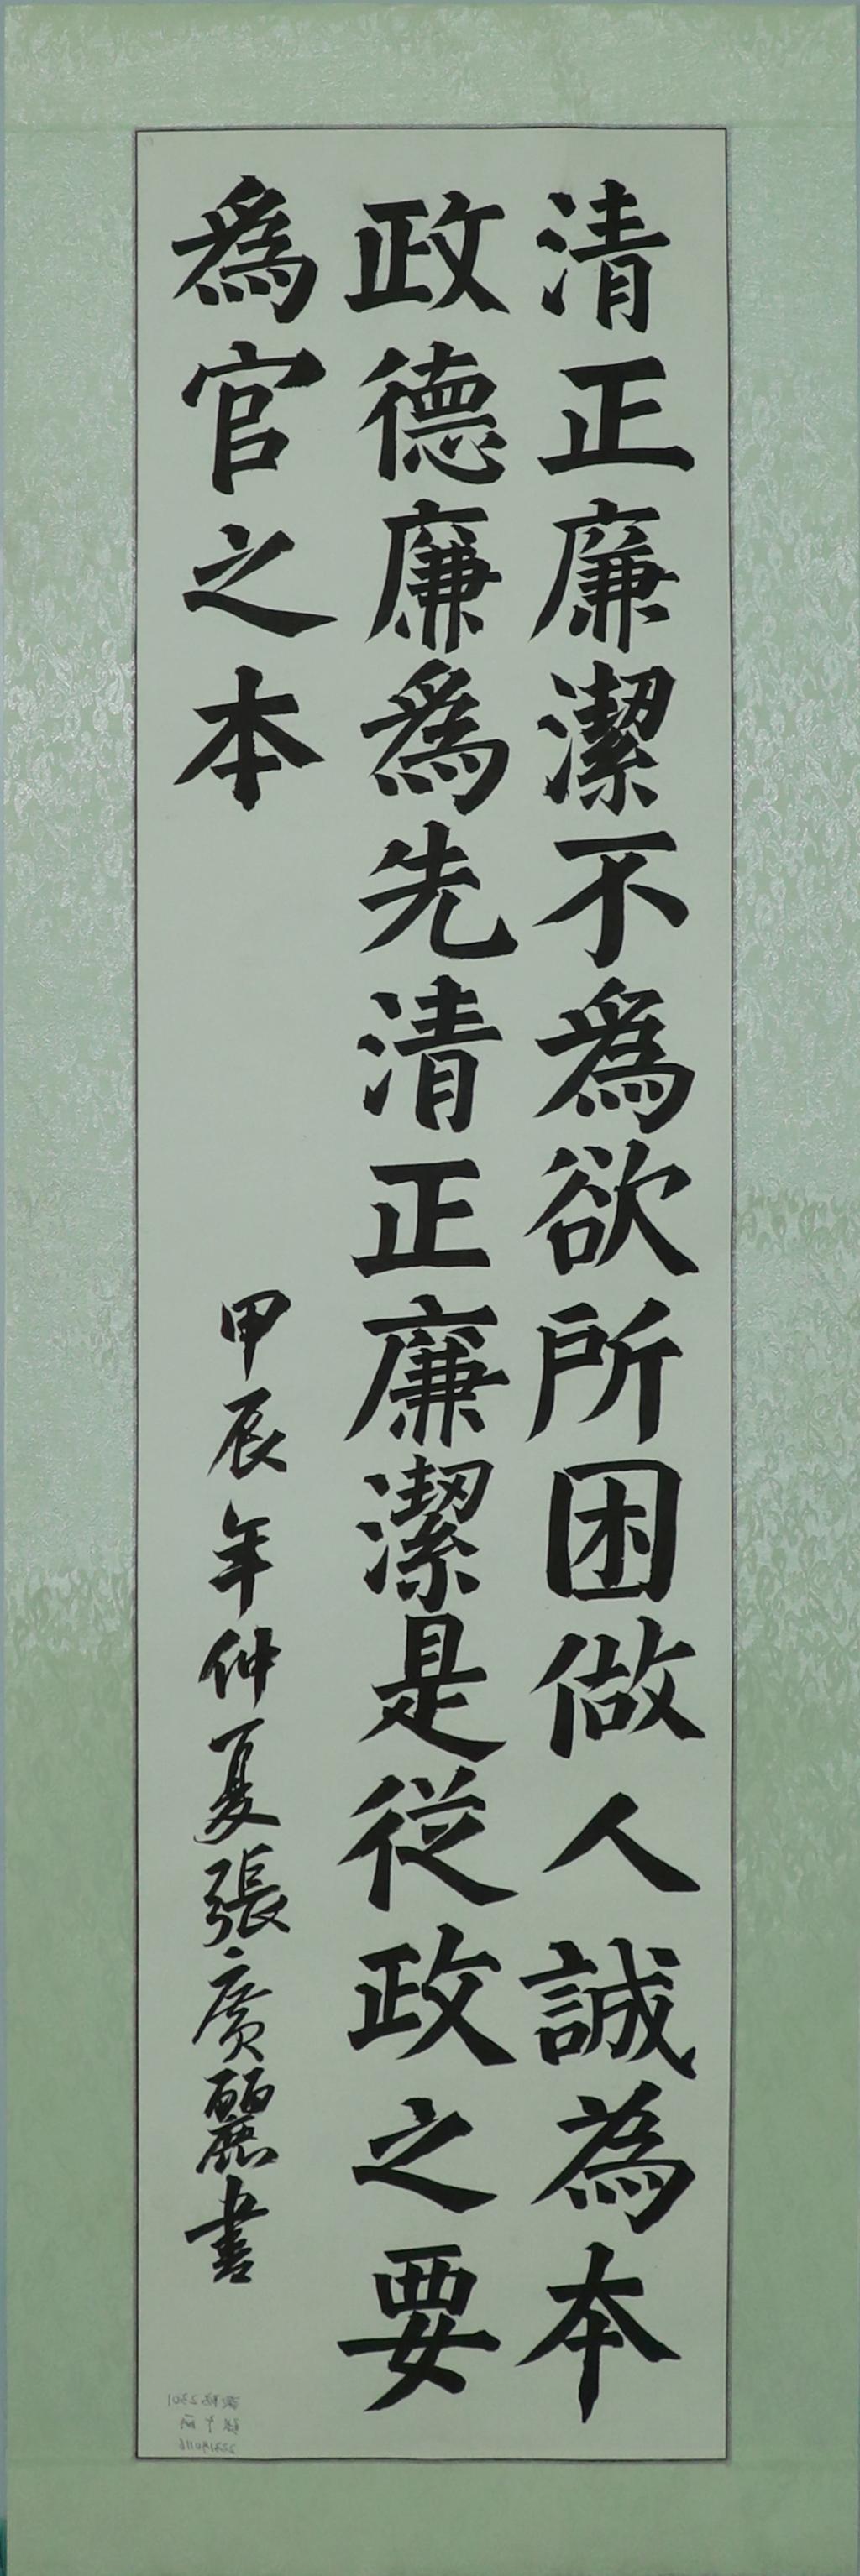 清正廉潔不為欲所困做人誠為本
政德廉為先清正廉潔是從政之要
為官之本
甲辰年仲夏張廣麗書